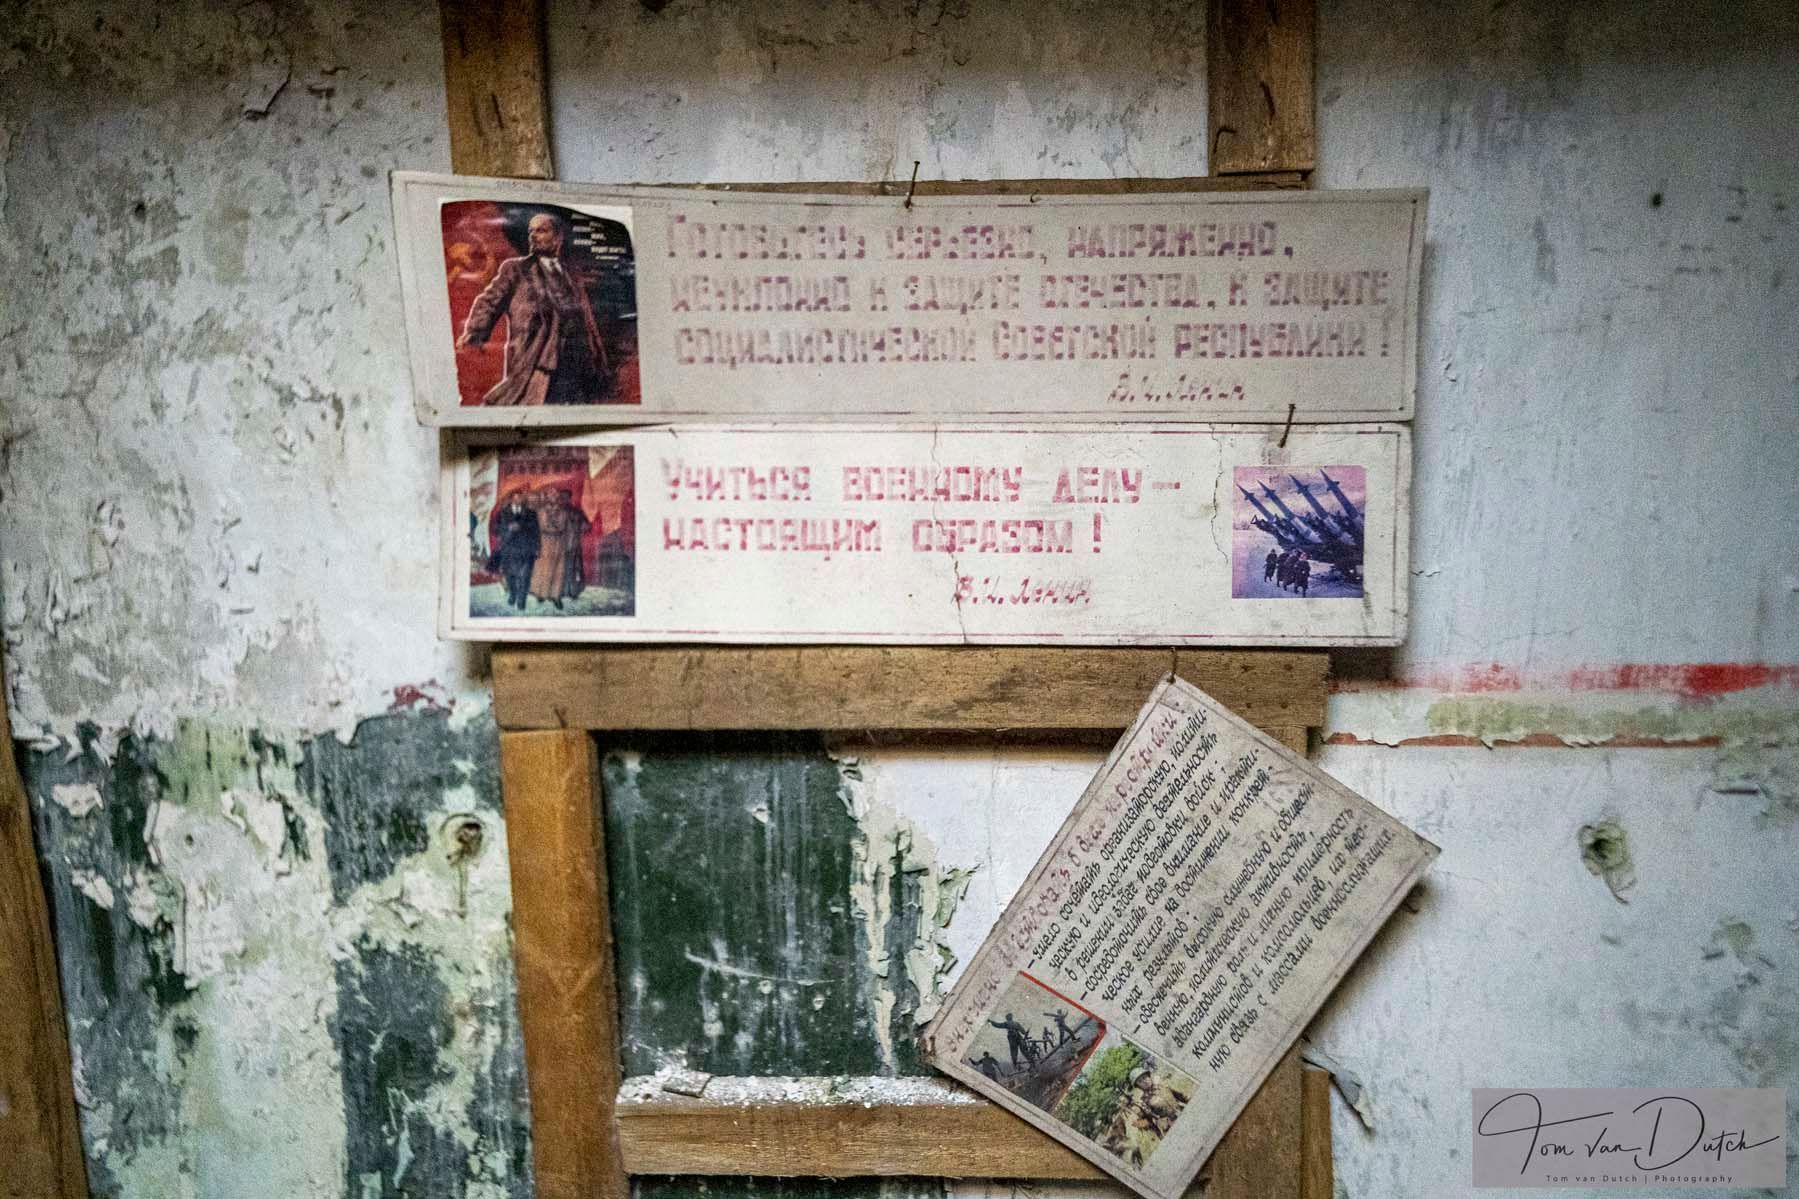 Готовьтесь серьезно, напряженно,
неуклонно к защите отечества, к защите
социалистической Советской республики!
В.И.Ленин.
Учиться военному делу —
настоящим образом!
В.И.Ленин.
— умело сочетать организаторскую, полити-
ческую и идеологическую деятельность
в решении задач подготовки войск;
— сосредоточить свое внимание и практи-
ческое усилие на достижении конкрет-
ных результатов;
— обеспечить высокую служебную и общест-
венно, политическую активность,
авангардную роль и личную примерность
коммунистов и комсомольцев, их тес-
ную связь с массами военнослужащих.
Tom van Dutch
Tom van Dutch | Photography